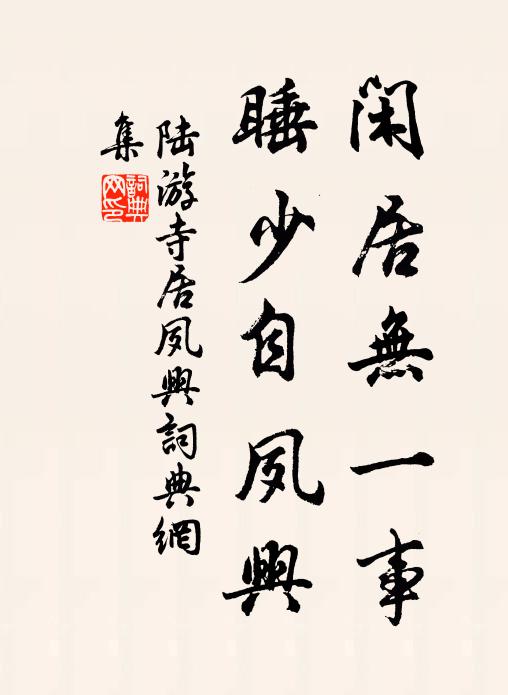 閑居無一事
睡少自夙興
陸游寺居夙興詞典網
集
詞典
网印